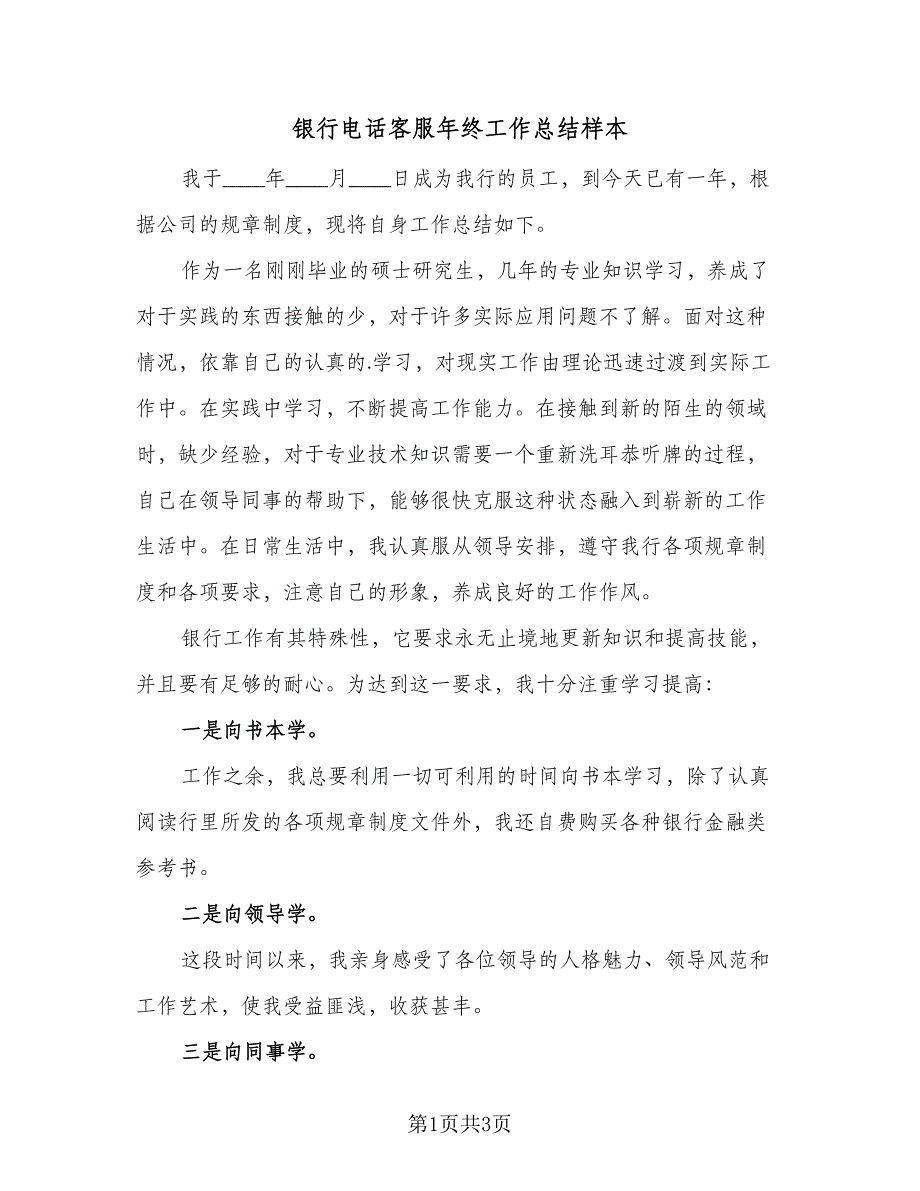 银行电话客服年终工作总结样本
我于____年____月____日成为我行的员工，到今天已有一年，根
据公司的规章制度，现将自身工作总结如下。
作为一名刚刚毕业的硕士研究生，几年的专业知识学习，养成了
对于实践的东西接触的少，对于许多实际应用问题不了解。面对这种
情况，依靠自己的认真的.学习，对现实工作由理论迅速过渡到实际工
作中。在实践中学习，不断提高工作能力。在接触到新的陌生的领域
时，缺少经验，对于专业技术知识需要一个重新洗耳恭听牌的过程，
自己在领导同事的帮助下，能够很快克服这种状态融入到崭新的工作
生活中。在日常生活中，我认真服从领导安排，遵守我行各项规章制
度和各项要求，注意自己的形象，养成良好的工作作风。
银行工作有其特殊性，它要求永无止境地更新知识和提高技能，
并且要有足够的耐心。为达到这一要求，我十分注重学习提高：
一是向书本学。
工作之余，我总要利用一切可利用的时间向书本学习，除了认真
阅读行里所发的各项规章制度文件外，我还自费购买各种银行金融类
参考书。
二是向领导学。
这段时间以来，我亲身感受了各位领导的人格魅力、领导风范和
工作艺术，使我受益匪浅，收获甚丰。
三是向同事学。
第1页共3页